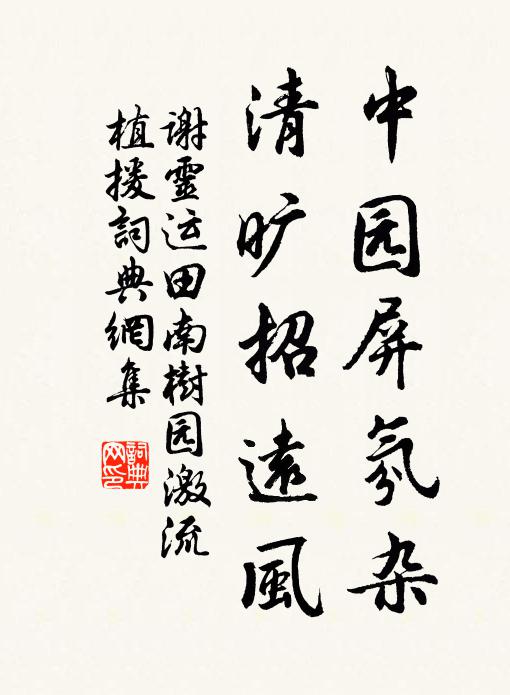 中园屏氛杂
清旷招遠風
谢靈运田南樹园激流
植援詞典網集
詞典网印